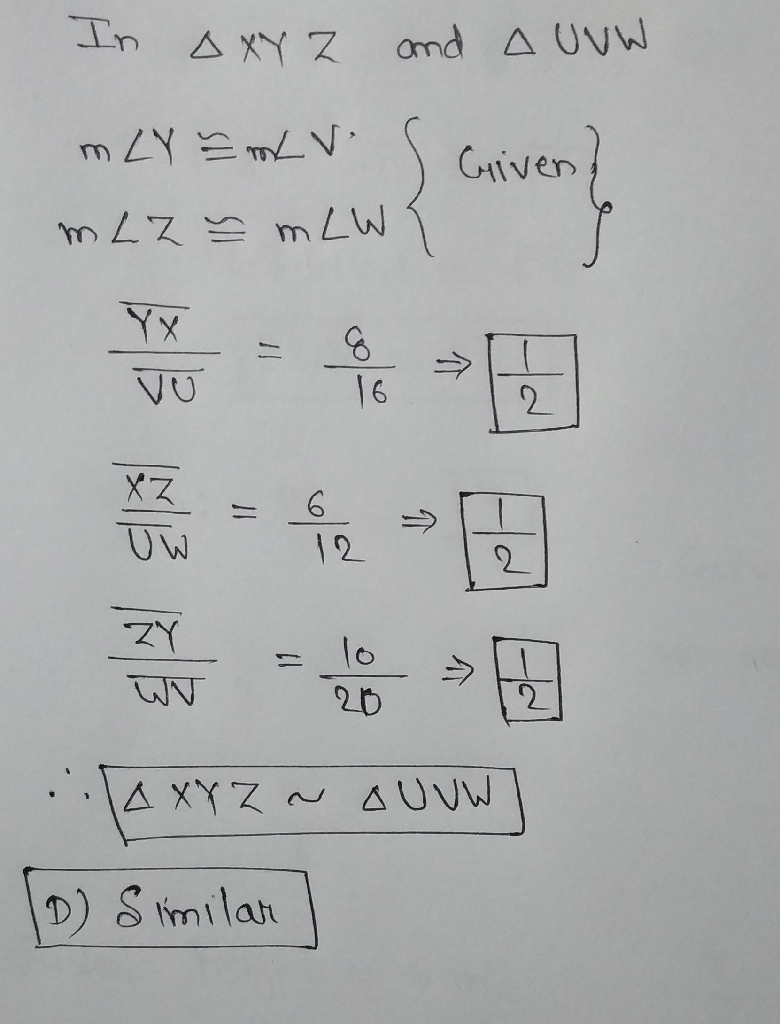 In △ XYZ and △ UVW
m∠Y ≅ m∠V.
m∠Z ≅ m∠W { Given }
YX/VU = 8/16 ⇒ 1/2
XZ/UW = 6/12 ⇒ 1/2
ZY/WV = 10/20 ⇒ 1/2
∴ △ XYZ ~ △ UVW
D) Similar